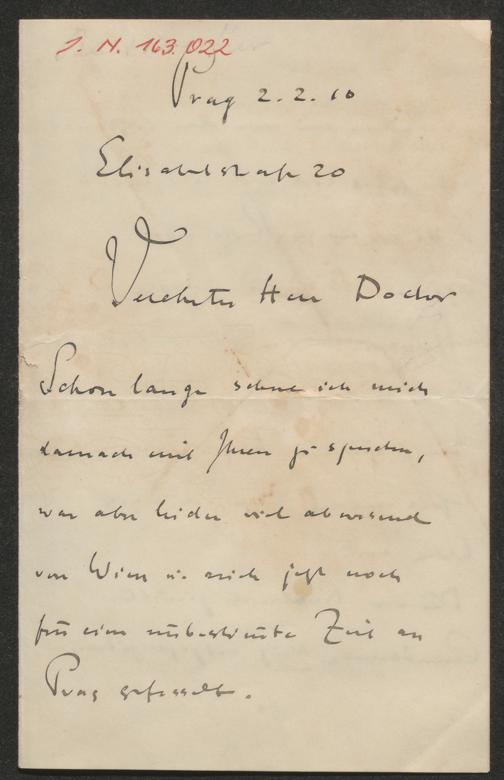 J. N. 163.022
Prag 2. 2. 10
Elisabethstraße 20
Verehrter Herr Doctor
Schon lange sehne ich mich
darnach mit Ihnen zu sprechen,
war aber leider viel abwesend
von Wien u. auch jetzt noch
für eine unbestimmte Zeit an
Prag gefesselt.